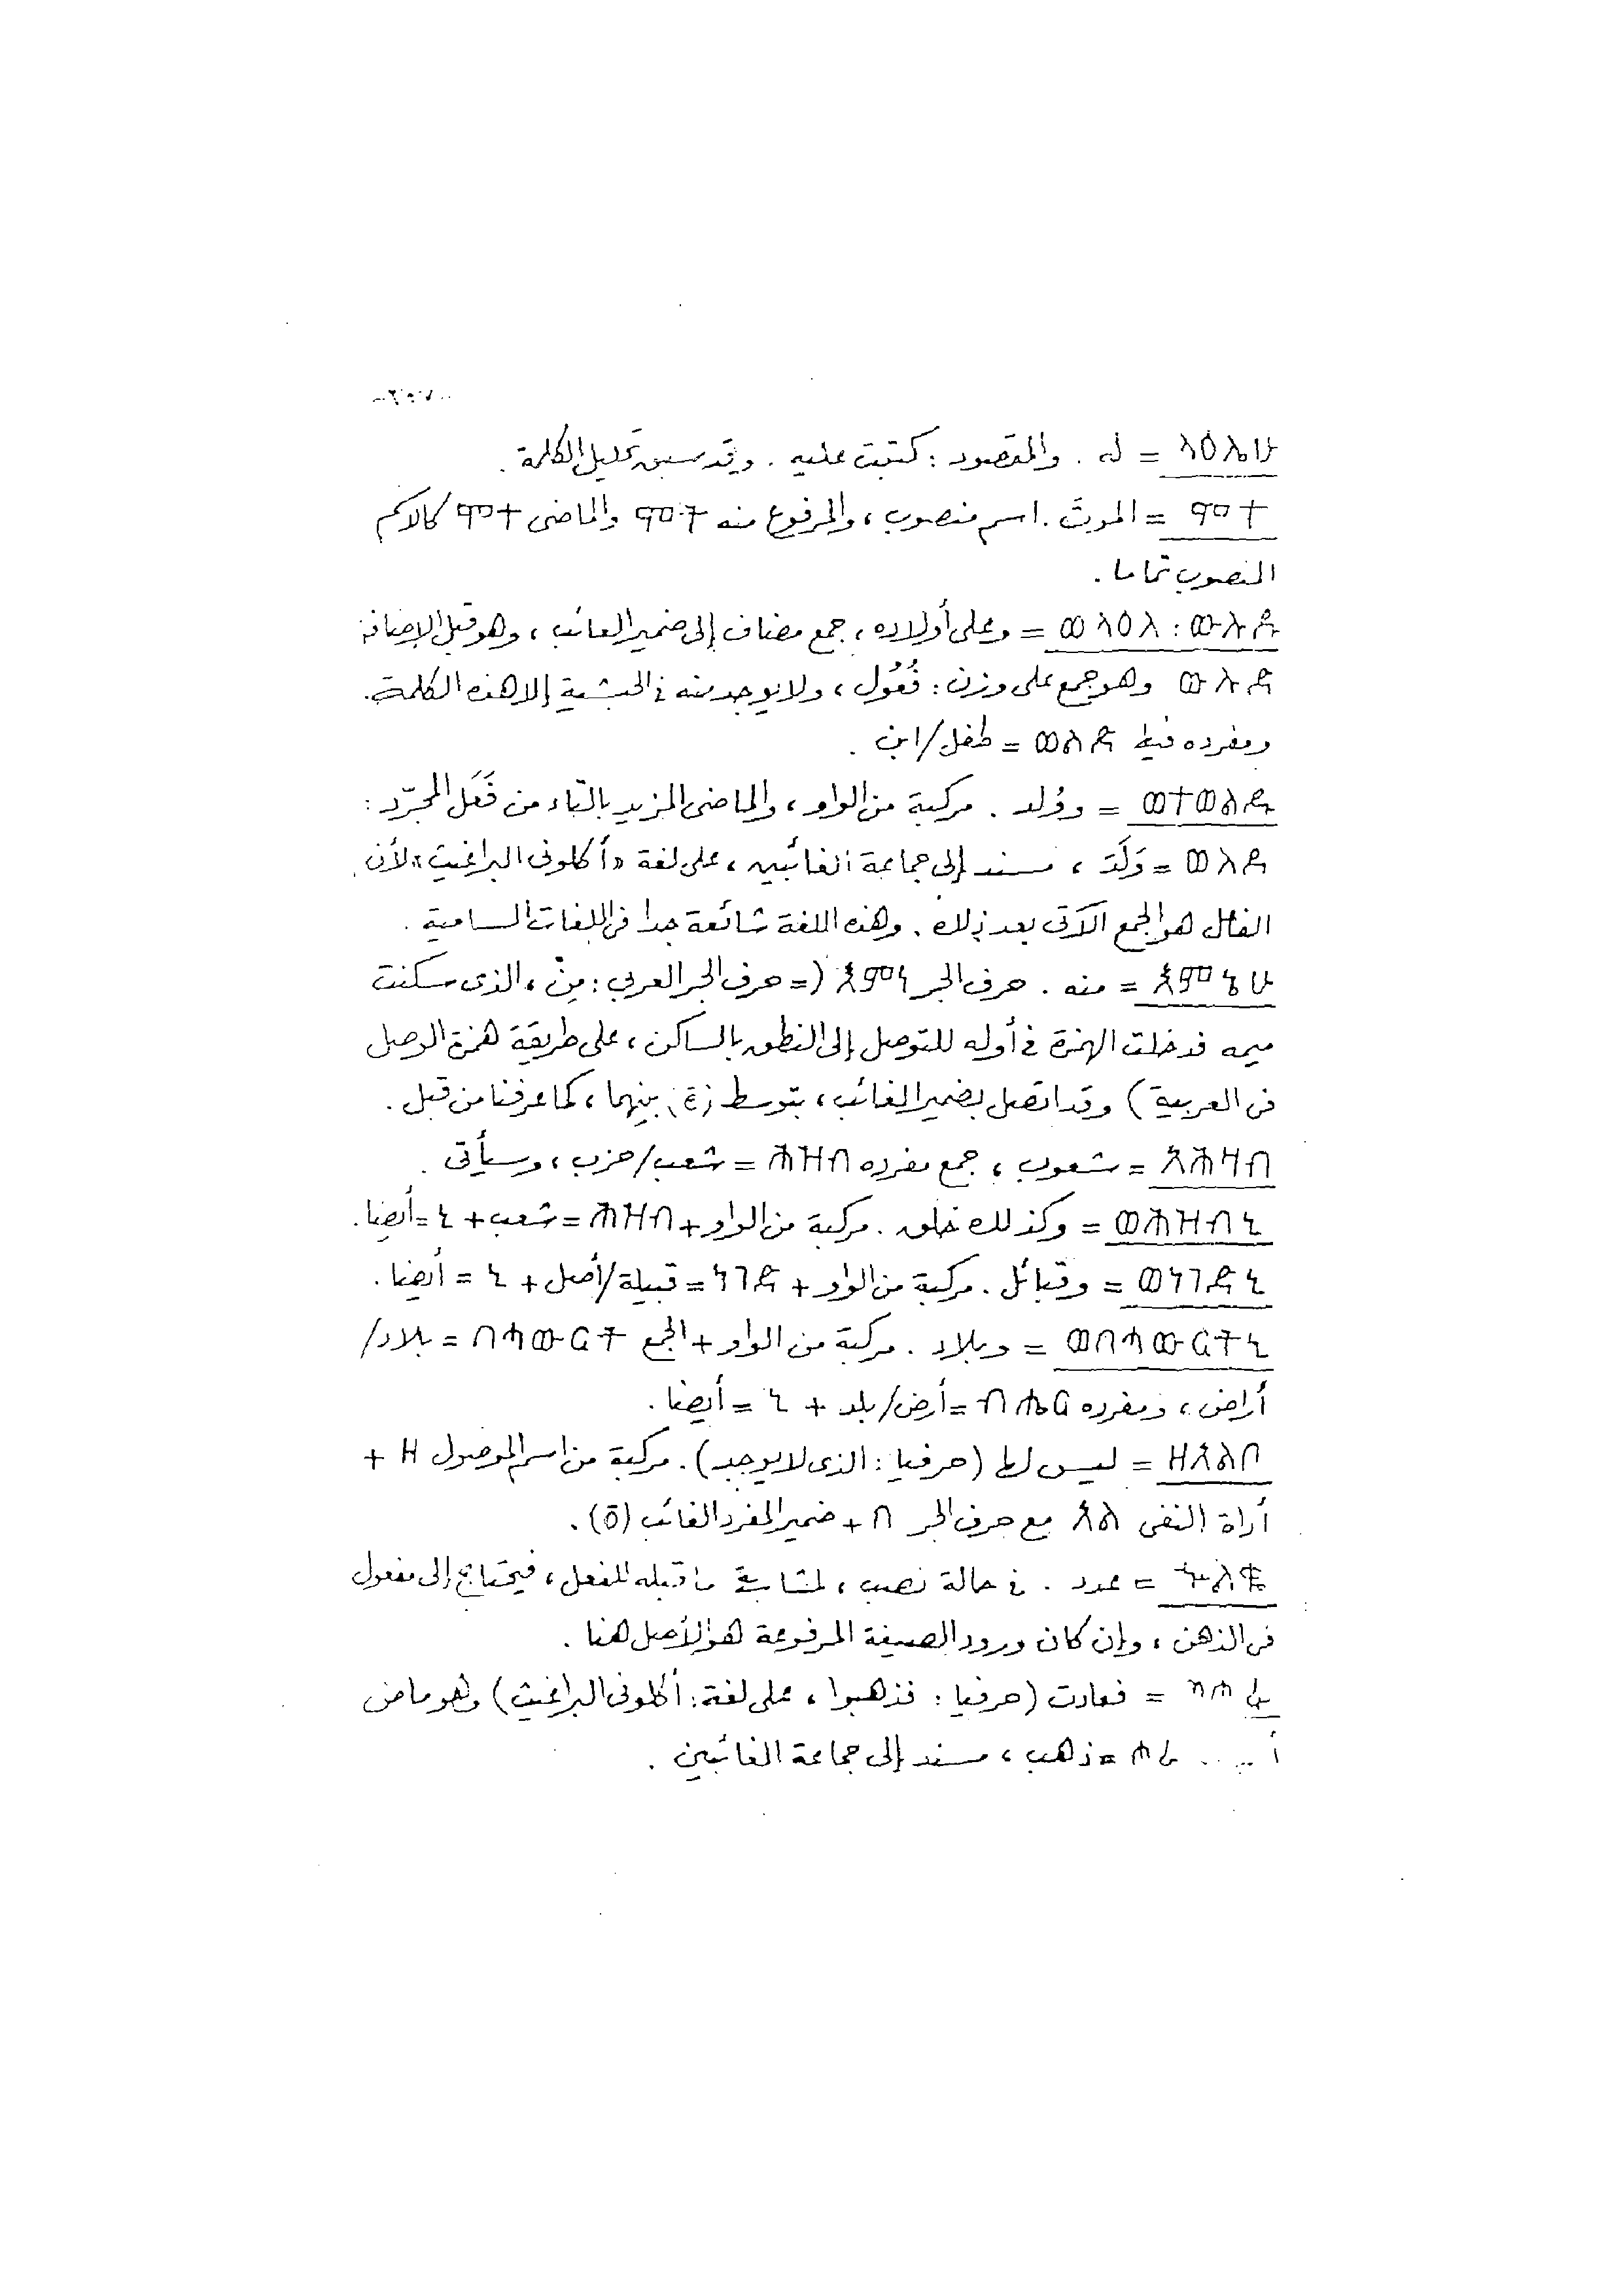 ላዕሌሁ = له . والمقصود : كتبت عليه . وقد سبق تحليل الكلمة .
ሞተ = الموتَ . اسم منصوب ، والمرفوع منه ሞት والماضى ሞተ كالاسم
المنصوب تماما .
ወላዕለ : ውሉዱ = وعلى أولاده ، جمع مضاف إلى ضمير الغائب ، وهو قبل الإضافة
ውሉድ وهو جمع على وزن : فُعُول ، ولا يوجد منه فى الحبشية إلا هذه الكلمة .
ومفرده فيها ወልድ = طفل/ابن .
ወተወልዱ = ووُلد . مركبة من الواو ، والماضى المزيد بالتاء من فَعَل المجرّد :
ወለደ = وَلَدَ ، مسند إلى جماعة الغائبين ، على لغة «أكلونى البراغيث» لأن
الفاعل هو الجمع الآتى بعد ذلك . وهذه اللغة شائعة جدا فى اللغات السامية .
እምኔሁ = منه . حرف الجر እምነ (= حرف الجر العربي : مِنْ ، الذى سكنت
ميمه فدخلت الهمزة فى أوله للتوصل إلى النطق بالساكن ، على طريقة همزة الوصل
فى العربية) وقد اتصل بضمير الغائب ، بتوسط (ē) بينهما ، كما عرفنا من قبل .
አሕዛብ = شعوب ، جمع مفرده ሕዝብ = شعب/حزب ، وسيأتى .
ወሕዝብኒ = وكذلك خلق . مركبة من الواو + ሕዝብ = شعب + ኒ = أيضا .
ወነገድኒ = وقبائل . مركبة من الواو + ነገድ = قبيلة/أصل + ኒ = أيضا .
ወበሐውርትኒ = وبلاد . مركبة من الواو + الجمع በሐውርት = بلاد/
أراض ، ومفرده ብሔር = أرض/بلد + ኒ = أيضا .
ዘአልቦ = ليس لها (حرفيا : الذى لا يوجد) . مركبة من اسم الموصول ዘ +
أداة النفى አል مع حرف الجر በ + ضمير المفرد الغائب (ō) .
ኍልቈ = عدد . فى حالة نصب ، لمشابهة ما قبله للفعل ، فيحتاج إلى مفعول
فى الذهن ، وإن كان ورود الصيغة المرفوعة هو الأصل هنا .
= فعادت (حرفيا : فذهبوا ، على لغة : أكلونى البراغيث) وهو ماض
= ذهب ، مسند إلى جماعة الغائبين .